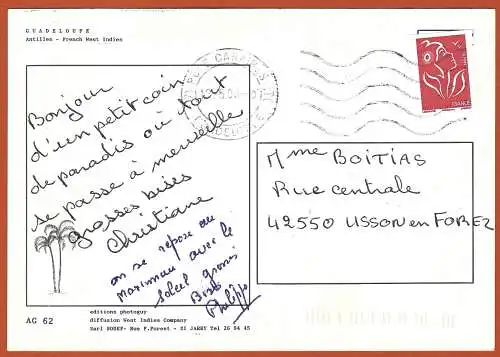 GUADELOUPE
Antilles - French West Indies
Bonjour
d'un petit coin
de paradis où tout
se passe à merveille
grosses bises
Christiane
on se repose au
maximum avec le
soleil grosses
Bises
Philippe
AG 62
editions photoguy
diffusion West Indies Company
FRANCE
Mme BOITIAS
Rue centrale
42550 USSON en FOREZ